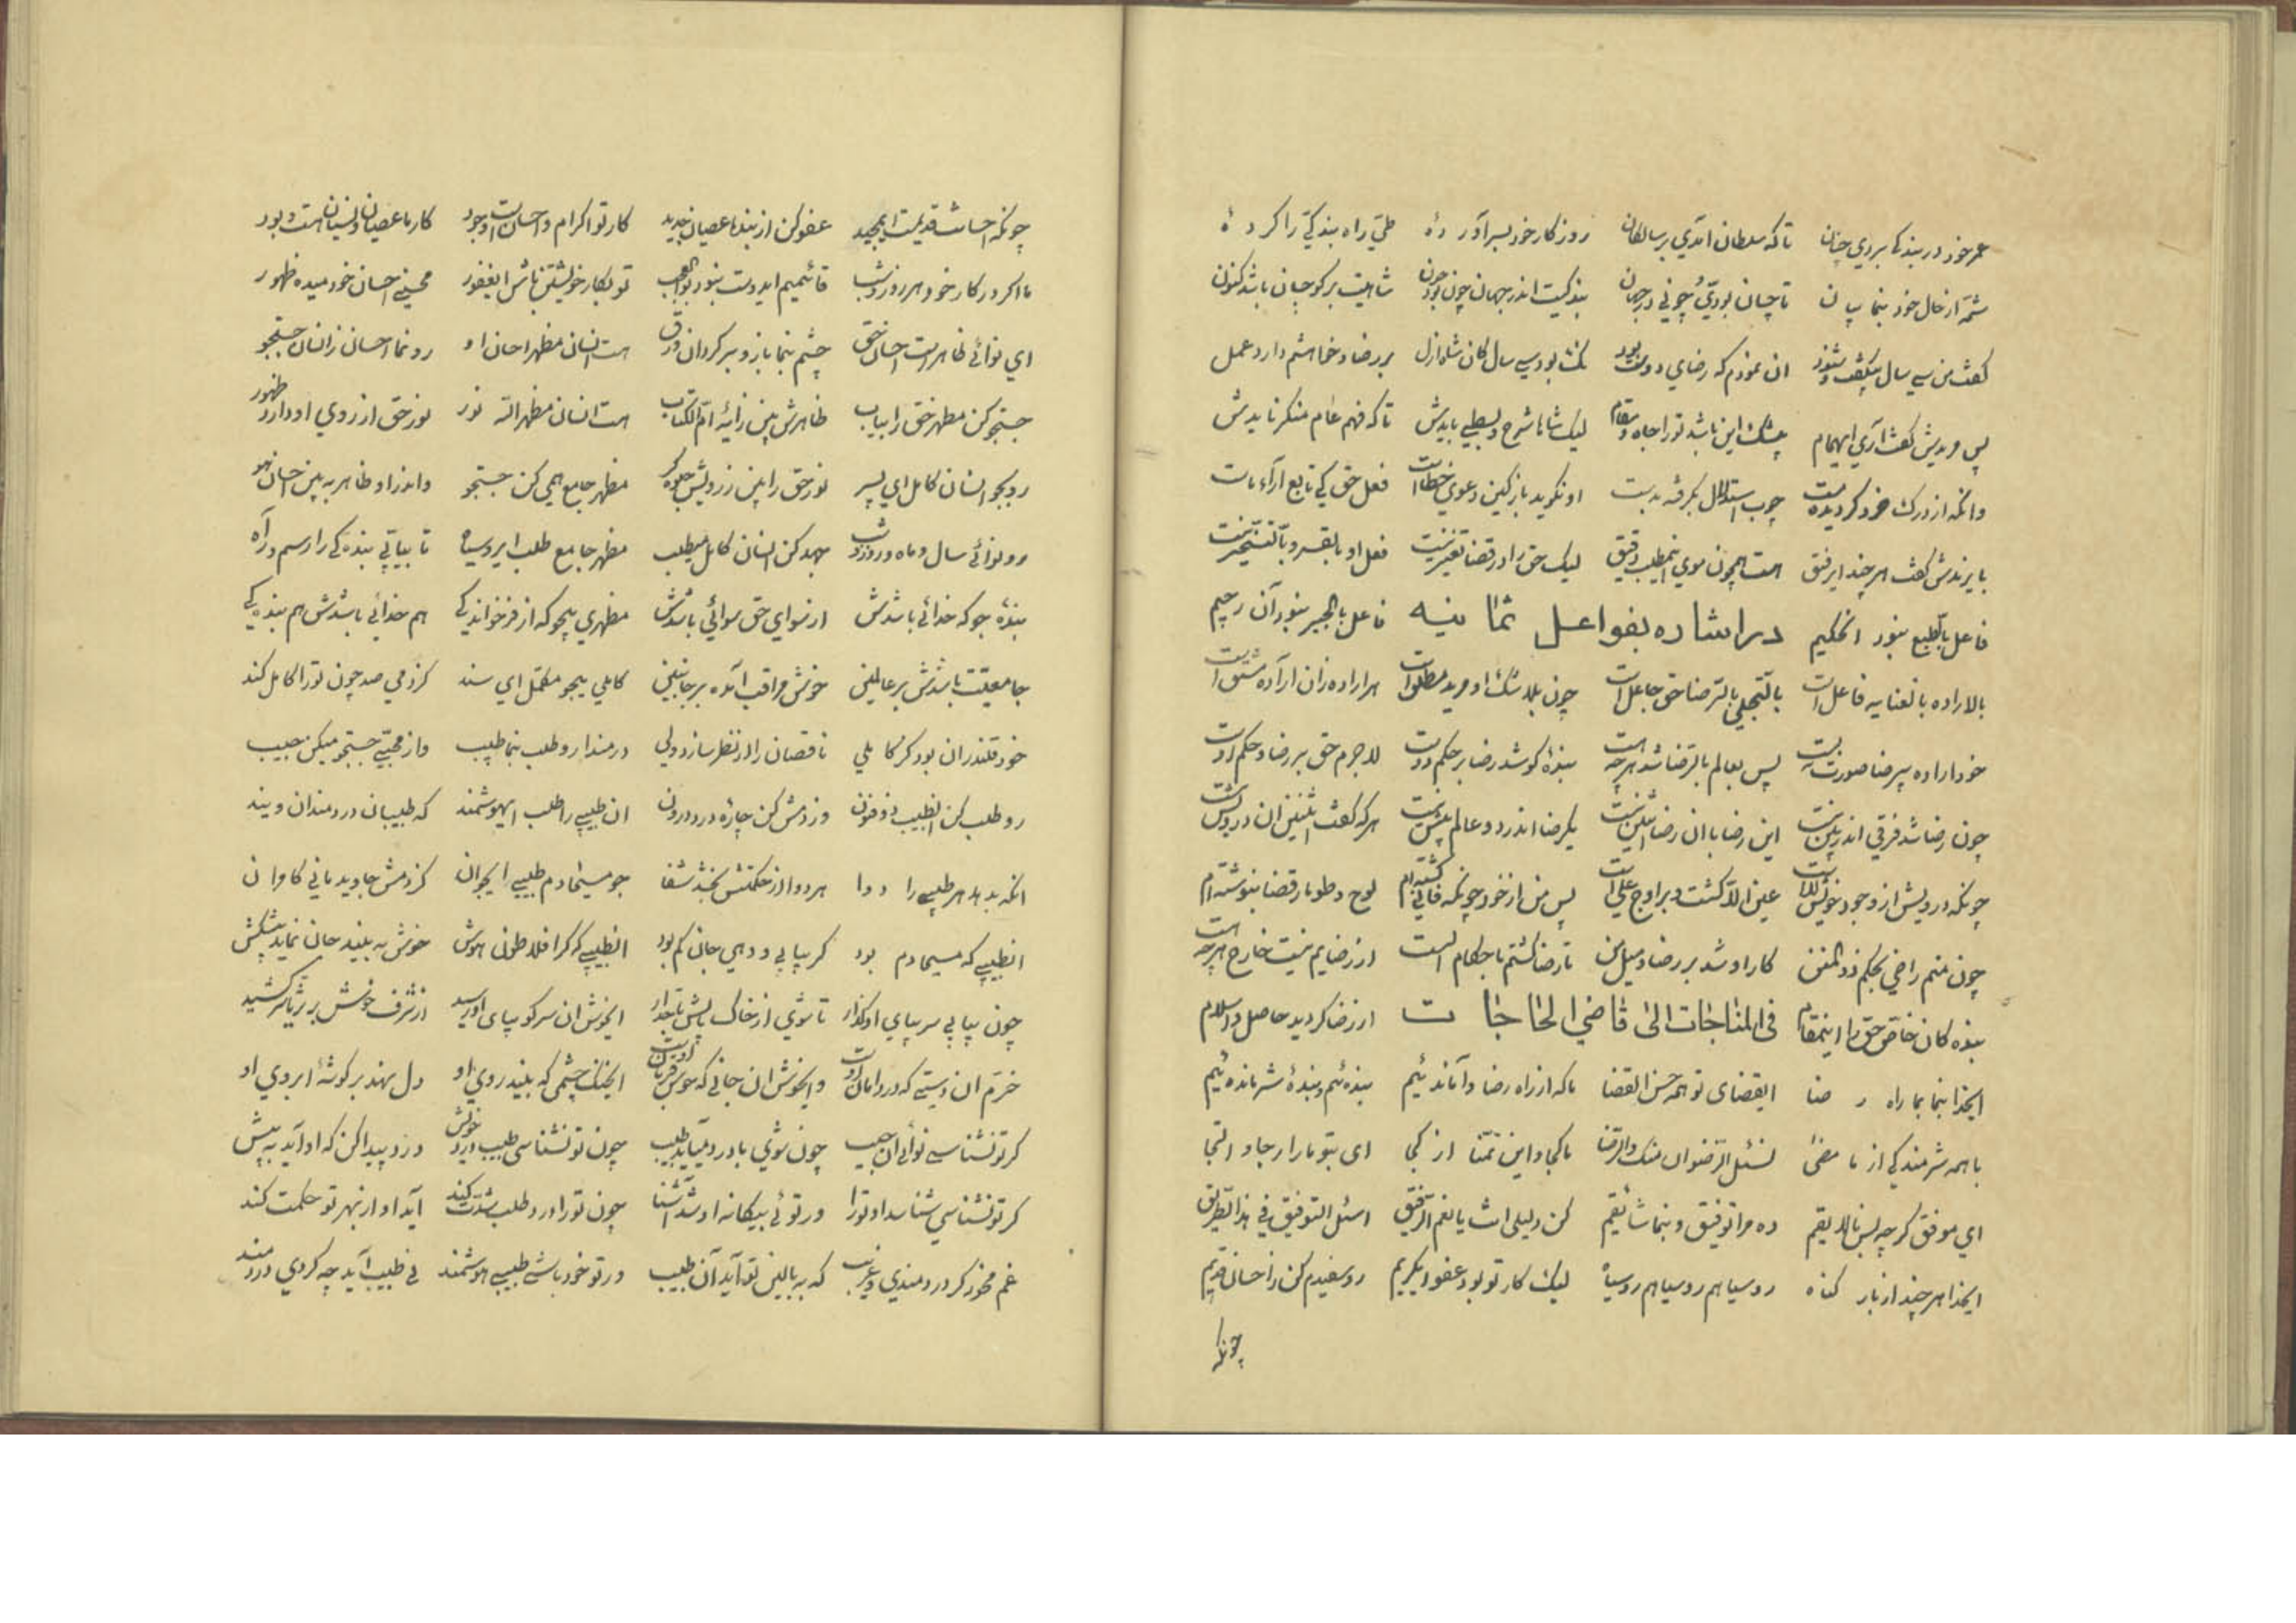 عمر خود در بندگی بردی چنان تا که سلطان آمدی بر سالکان روزگار خود بسر آورده طی راه بندگی را کرده
شمّه از حال خود بنما بیان تا چسان بودی و چونی در جهان بندگیت اندر جهان چون بود چون شاهیت برگو چسان باشد کنون
گفت من سی سال بیگفت و شنود ان نمودم که رضای دوست بود گشت بود سی سال کان شاه ازل بر رضا و خواهشم دارد عمل
پس مریدش گفت آری ایهمام بیشک این باشد تو را جاه و مقام لیک شاها شرح و بسطی بایدش تا که فهم عام منکر نایدش
وانکه از درک خرد گردیده مست چوب استدلال بگرفته بدست او نگوید بازکین دعوی خطاست فعل حق کی تابع آراء ماست
بایزیدش گفت هر چند ایرفیق هست همچون موی اینمطلب دقیق لیک حق را در قضا تغییر نیست فعل او بالقسر و بالتسخیر نیست
فاعل بالطبع نبود انحکیم در اشاره بفواعل ثمانیه فاعل بالجبر نبود آن رحیم
بالاراده بالعنایه فاعل است بالتجلی بالرضا حق جاعل است چون بلا شک او مرید مطلق است هر اراده زان اراده مشتق است
خود اراده بیرضا صورت نبست پس بعالم بالرضا شد هر چه هست بنده کو شد رضا بر حکم دوست لاجرم حق بر رضا و حکم اوست
چون رضا شد فرقی اندر بین نیست این رضا با ان رضا اثنین نیست یکرضا اندر دو عالم بیش نیست هر که گفت اثنین ان درویش نیست
چونکه درویش از وجود خویش لاست عین الا گشت و بر اوج علاست پس من از خود چونکه فانی گشته‌ام لوح و طومار قضا بنوشته‌ام
چون منم راضی بحکم ذوالمنن کار او شد بر رضا و میل من تا رضا گشتم باحکام الست از رضایم نیست خارج هر چه هست
بنده کان خاص حق را اینمقام فی المناجات الی قاضی الحاجات از رضا گردید حاصل والسلام
ایخدا بنما بما راه رضا ایقضای تو همه حسن القضا ما که از راه رضا وامانده‌ئیم بنده‌ئیم و بنده شرمنده‌ئیم
با همه شرمندگی از ما مضی نسئل الرضوان منک والرضا ما کجا و این تمنا از کجا ای بتو ما را رجا و التجا
ای موفق گرچه بس نالایقم ده مرا توفیق و بنما شائقم کن دلیلی انت یا نعم الرفیق اسئل التوفیق فی هذا الطریق
ایخدا هر چند از بار گناه رو سیاهم رو سیاهم رو سیاه لیک کار تو بود عفو ایکریم رو سفیدم کن ز احسان قدیم
چونکه
چونکه احسانت قدیمست ایمجید عفو کن از بنده عصیان جدید کار تو اکرام و احسانست و جود کار ما عصیان و نسیان هست و بود
ما اگر در کار خود هر روز و شب قائمیم ایدوست نبود بوالعجب تو بکار خویشتن باش ایغفور محسنی احسان خود میده ظهور
ای نوائی ظاهر است احسان حق چشم بنما باز و برگردان ورق هست انسان مظهر احسان او رو نما احسان ز انسان جستجو
جستجو کن مظهر حق را بیاب ظاهرش بین ز آیه ام الکتاب هست انسان مظهر الله نور نور حق از روی او دارد ظهور
رو بجو انسان کامل ای پسر نور حق را بین ز رویش جلوه‌گر مظهر جامع همی کن جستجو واندر او ظاهر ببین احسان هو
رو نوائی سال و ماه و روز و شب جهد کن انسان کامل میطلب مظهر جامع طلب ایرو سیاه تا بیابی بندگی را رسم و راه
بنده جو که خدائی باشدش از سوای حق سوائی باشدش مظهری میجو که از فرخندگی هم خدائی باشدش هم بندگی
جامعیت باشدش بر عالمین خوش مراقب آمده بر جانبین کاملی میجو مکمل ای سند کز دمی صد چون تو را کامل کند
خود قلندر ان بود کز کاملی ناقصان را از نظر سازد ولی درمندا رو طلب بنما طبیب واز محبتی جستجو میکن حبیب
رو طلب کن انطبیب ذوفنون وز دمش کن چاره درد درون ان طبیبی را طلب ایهوشمند که طبیبان دردمندان ویند
انکه بدهد هر طبیبی را دوا هر دوا از حکمتش بخشد شفا جو مسیحا دم طبیبی ایجوان کز دمش جاوید مانی کامران
انطبیبی که مسیحا دم بود گر بیابی و دهی جانی کم بود انطبیبی که گر افلاطون هوش خوش به بیند جان نماید پیشکش
چون بیابی سر بپای او گذار تا شوی از خاک پایش تاجدار ایخوش ان سر کو بپای او رسید از شرف خوش بر ثریا سر کشید
خرم ان دستی که در دامان اوست وایخوش ان جانی که خوش قربان اوست ایخنک چشمی که بیند روی او دل نهد بر گوشه ابروی او
گر تو نشناسی نوائی ان حبیب چون شوی با درد میآید طبیب چون تو نشناسی طبیب درد خویش درد پیدا کن که او آید به پیش
گر تو نشناسی شناسد او تو را ور توئی بیگانه او شد آشنا چون تو را درد و طلب شدت کند آید او از بهر تو حکمت کند
غم مخور گر دردمندی و غریب که به بالین تو آید آن طبیب ور تو خود باشی طبیب هوشمند نی طبیب آید چه گردی دردمند